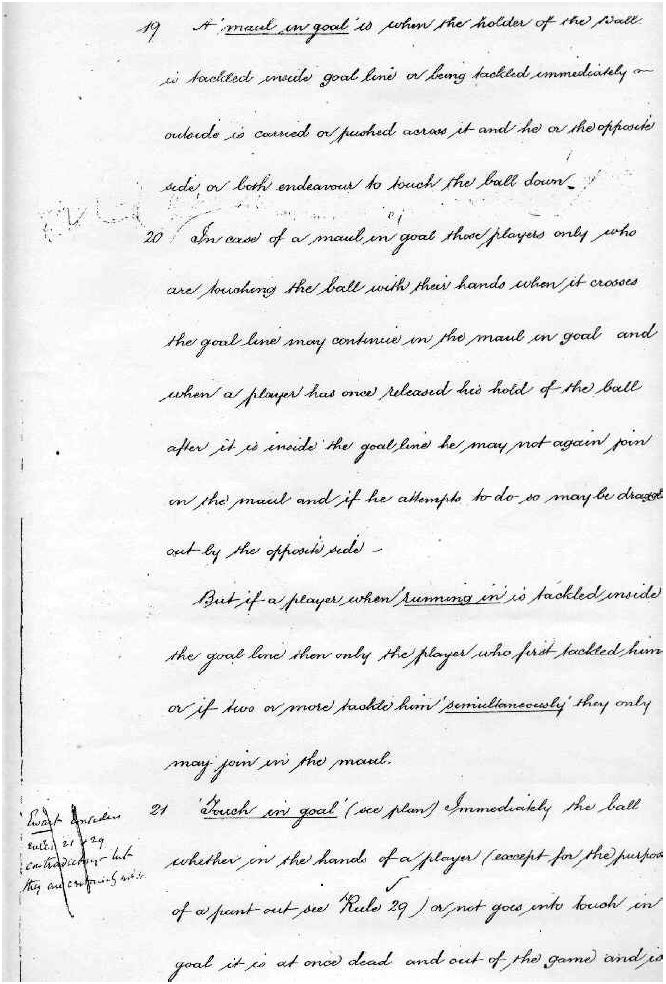 19 A 'maul in goal' is when the holder of the Ball
is tackled inside goal line or being tackled immediately
outside is carried or pushed across it and he or the opposite
side or both endeavour to touch the ball down.
20 In case of a maul in goal those players only who
are touching the ball with their hands when it crosses
the goal line may continue in the maul in goal and
when a player has once released his hold of the ball
after it is inside the goal line he may not again join
in the maul and if he attempts to do so may be dragged
out by the opposite side –
But if a player when 'running in' is tackled inside
the goal line then only the player who first tackled him
or if two or more tackle him 'simultaneously' they only
may join in the maul.
21 'Touch in goal' (see plan) Immediately the ball
whether in the hands of a player (except for the purpose
of a punt out see Rule 29) or not goes into touch in
goal it is at once dead and out of the game and is
Ewart considers
rules 21 & 29
contradictory but
they are